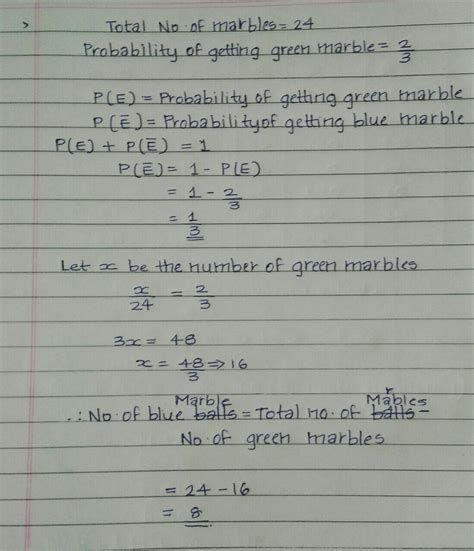 > Total No. of marbles = 24
Probability of getting green marble = 2/3
P(E) = Probability of getting green marble
P(Ē) = Probability of getting blue marble
P(E) + P(Ē) = 1
P(Ē) = 1 - P(E)
= 1 - 2/3
= 1/3
Let x be the number of green marbles
x/24 = 2/3
3x = 48
x = 48/3 ⇒ 16
Marble Marbles
.: No. of blue balls = Total no. of balls -
No. of green marbles
= 24 - 16
= 8